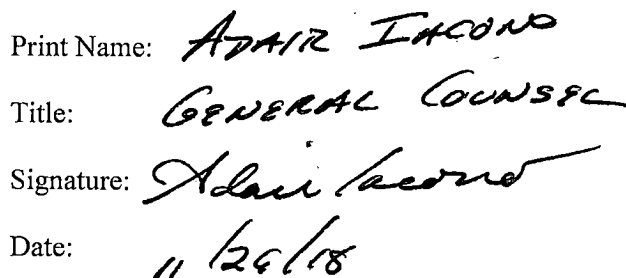 Print Name: ADAIR IACONO
Title: GENERAL COUNSEL
Signature: Adair Iacono
Date: